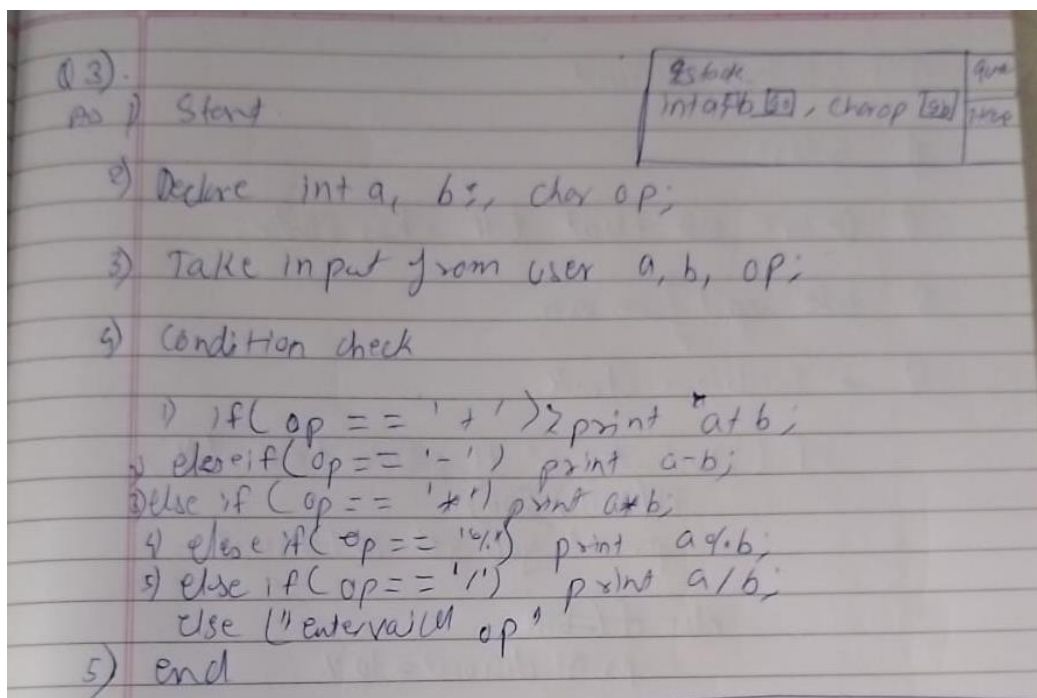 Q 3).
1) Start
int a, b, char op
2) Declare int a, b;, char op;
3) Take input from user a, b, op;
4) Condition check
1) if( op == '+' ) print "a+b;
else if( op == '-' ) print a-b;
3) else if ( op == '*' ) print a*b;
4) else if( op == '%' ) print a%b;
5) else if ( op == '/' ) print a/b;
else (" op"
5) end